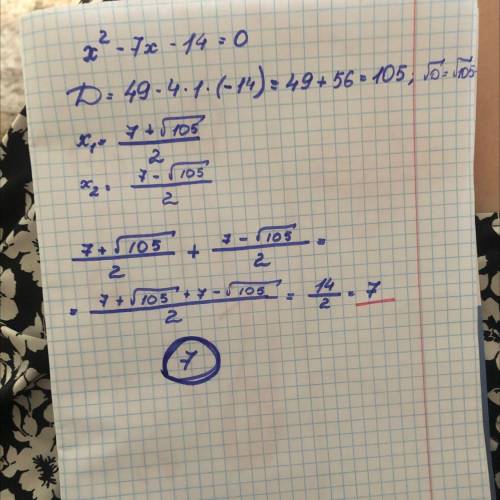 x² - 7x - 14 = 0
D = 49 - 4 · 1 · (-14) = 49 + 56 = 105; √D = √105
x₁ = (7 + √105) / 2
x₂ = (7 - √105) / 2
(7 + √105) / 2 + (7 - √105) / 2 =
= (7 + √105 + 7 - √105) / 2 = 14 / 2 = 7
7